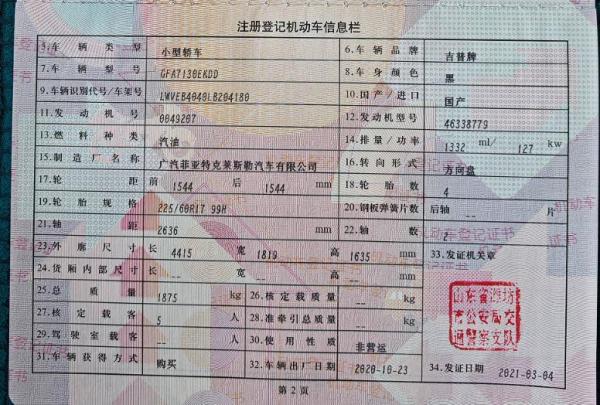 注册登记机动车信息栏
5.车辆类型 小型轿车 6.车辆品牌 吉普牌
7.车辆型号 GFA7130EKDD 8.车身颜色 黑
9.车辆识别代号/车架号 LWVEB4048LB204180 10.国产/进口 国产
11.发动机号 0049207 12.发动机型号 46338779
13.燃料种类 汽油 14.排量/功率 1332 ml/ 127 kw
15.制造厂名称 广汽菲亚特克莱斯勒汽车有限公司 16.转向形式 方向盘
17.轮距 前 1544 后 1544 mm 18.轮胎数 4
19.轮胎规格 225/60R17 99H 20.钢板弹簧片数 后轴 -- 片
21.轴距 2636 mm 22.轴数 2
23.外廓尺寸 长 4415 宽 1819 高 1635 mm 33.发证机关章
24.货厢内部尺寸 长 -- 宽 -- 高 -- mm
25.总质量 1875 kg 26.核定载质量 -- kg
27.核定载客 5 人 28.准牵引总质量 -- kg
29.驾驶室载客 -- 人 30.使用性质 非营运
31.车辆获得方式 购买 32.车辆出厂日期 2020-10-23 34.发证日期 2021-03-04
山东省潍坊
市公安局交
通警察支队
第2页